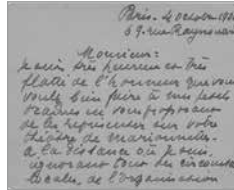 Paris - 4 octobre
69. rue Raynouard
Monsieur:
Je suis très heureux et très
flatté de l'honneur que vous
voulez bien faire à mes petits
en vous proposant
de les représenter sur votre
théâtre de marionnettes.
A la distance où je suis,
ignorant tout des circonstances
locales, de l'organisation